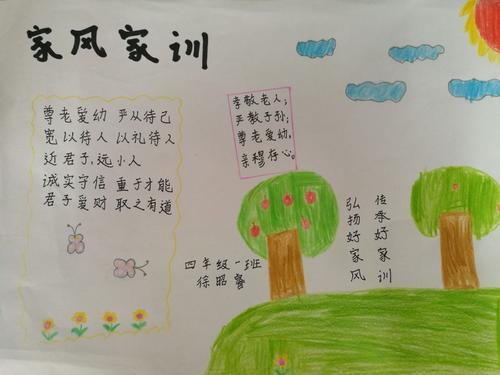 家风家训
尊老爱幼 严从待己
宽以待人 以礼待人
近君子,远小人
诚实守信 重于才能
君子爱财 取之有道
孝敬老人;
严教子孙;
尊老爱幼,
亲穆存心。
传承好家训
弘扬好家风
四年级一班
徐昭